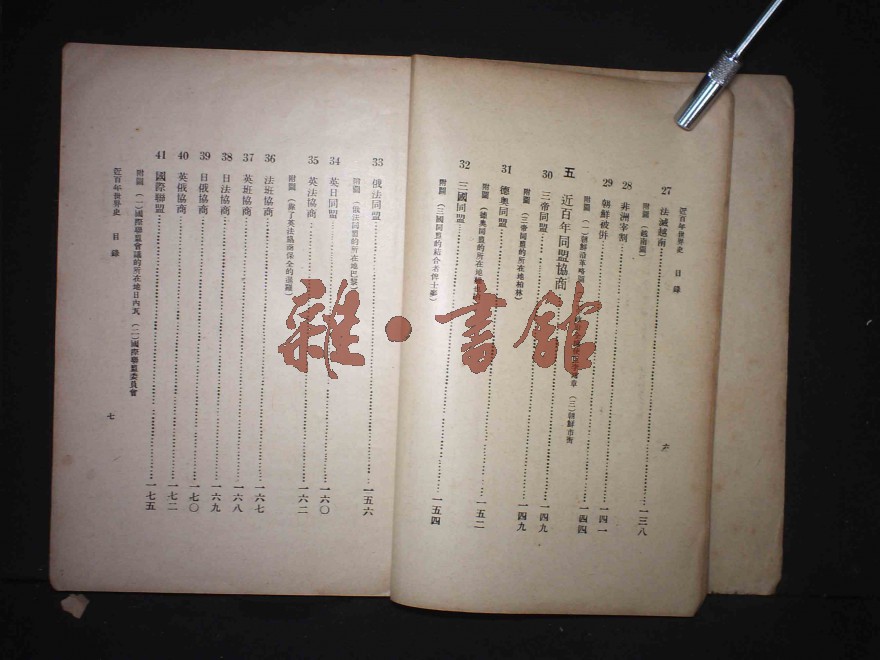 近百年世界史 目錄
六
27 法滅越南……一三八
附圖（越南圖）
28 非洲宰割……一四一
29 朝鮮被併……一四四
附圖（一）朝鮮沿革略圖（三）朝鮮市街
五 近百年同盟協商……一四九
30 三帝同盟……一四九
附圖（三帝同盟的所在地柏林）
31 德奧同盟……一五二
附圖（德奧同盟的所在地
32 三國同盟……一五四
附圖（三國同盟的結合者俾士麥）
33 俄法同盟……一五六
附圖（俄法同盟的所在地巴黎）
34 英日同盟……一六〇
35 英法協商……一六二
附圖（靠了英法協商保全的暹羅）
36 法班協商……一六七
37 英班協商……一六八
38 日法協商……一六九
39 日俄協商……一七〇
40 英俄協商……一七二
41 國際聯盟……一七五
附圖（一）國際聯盟會議的所在地日內瓦（二）國際聯盟委員會
近百年世界史 目錄
七
雜·書館